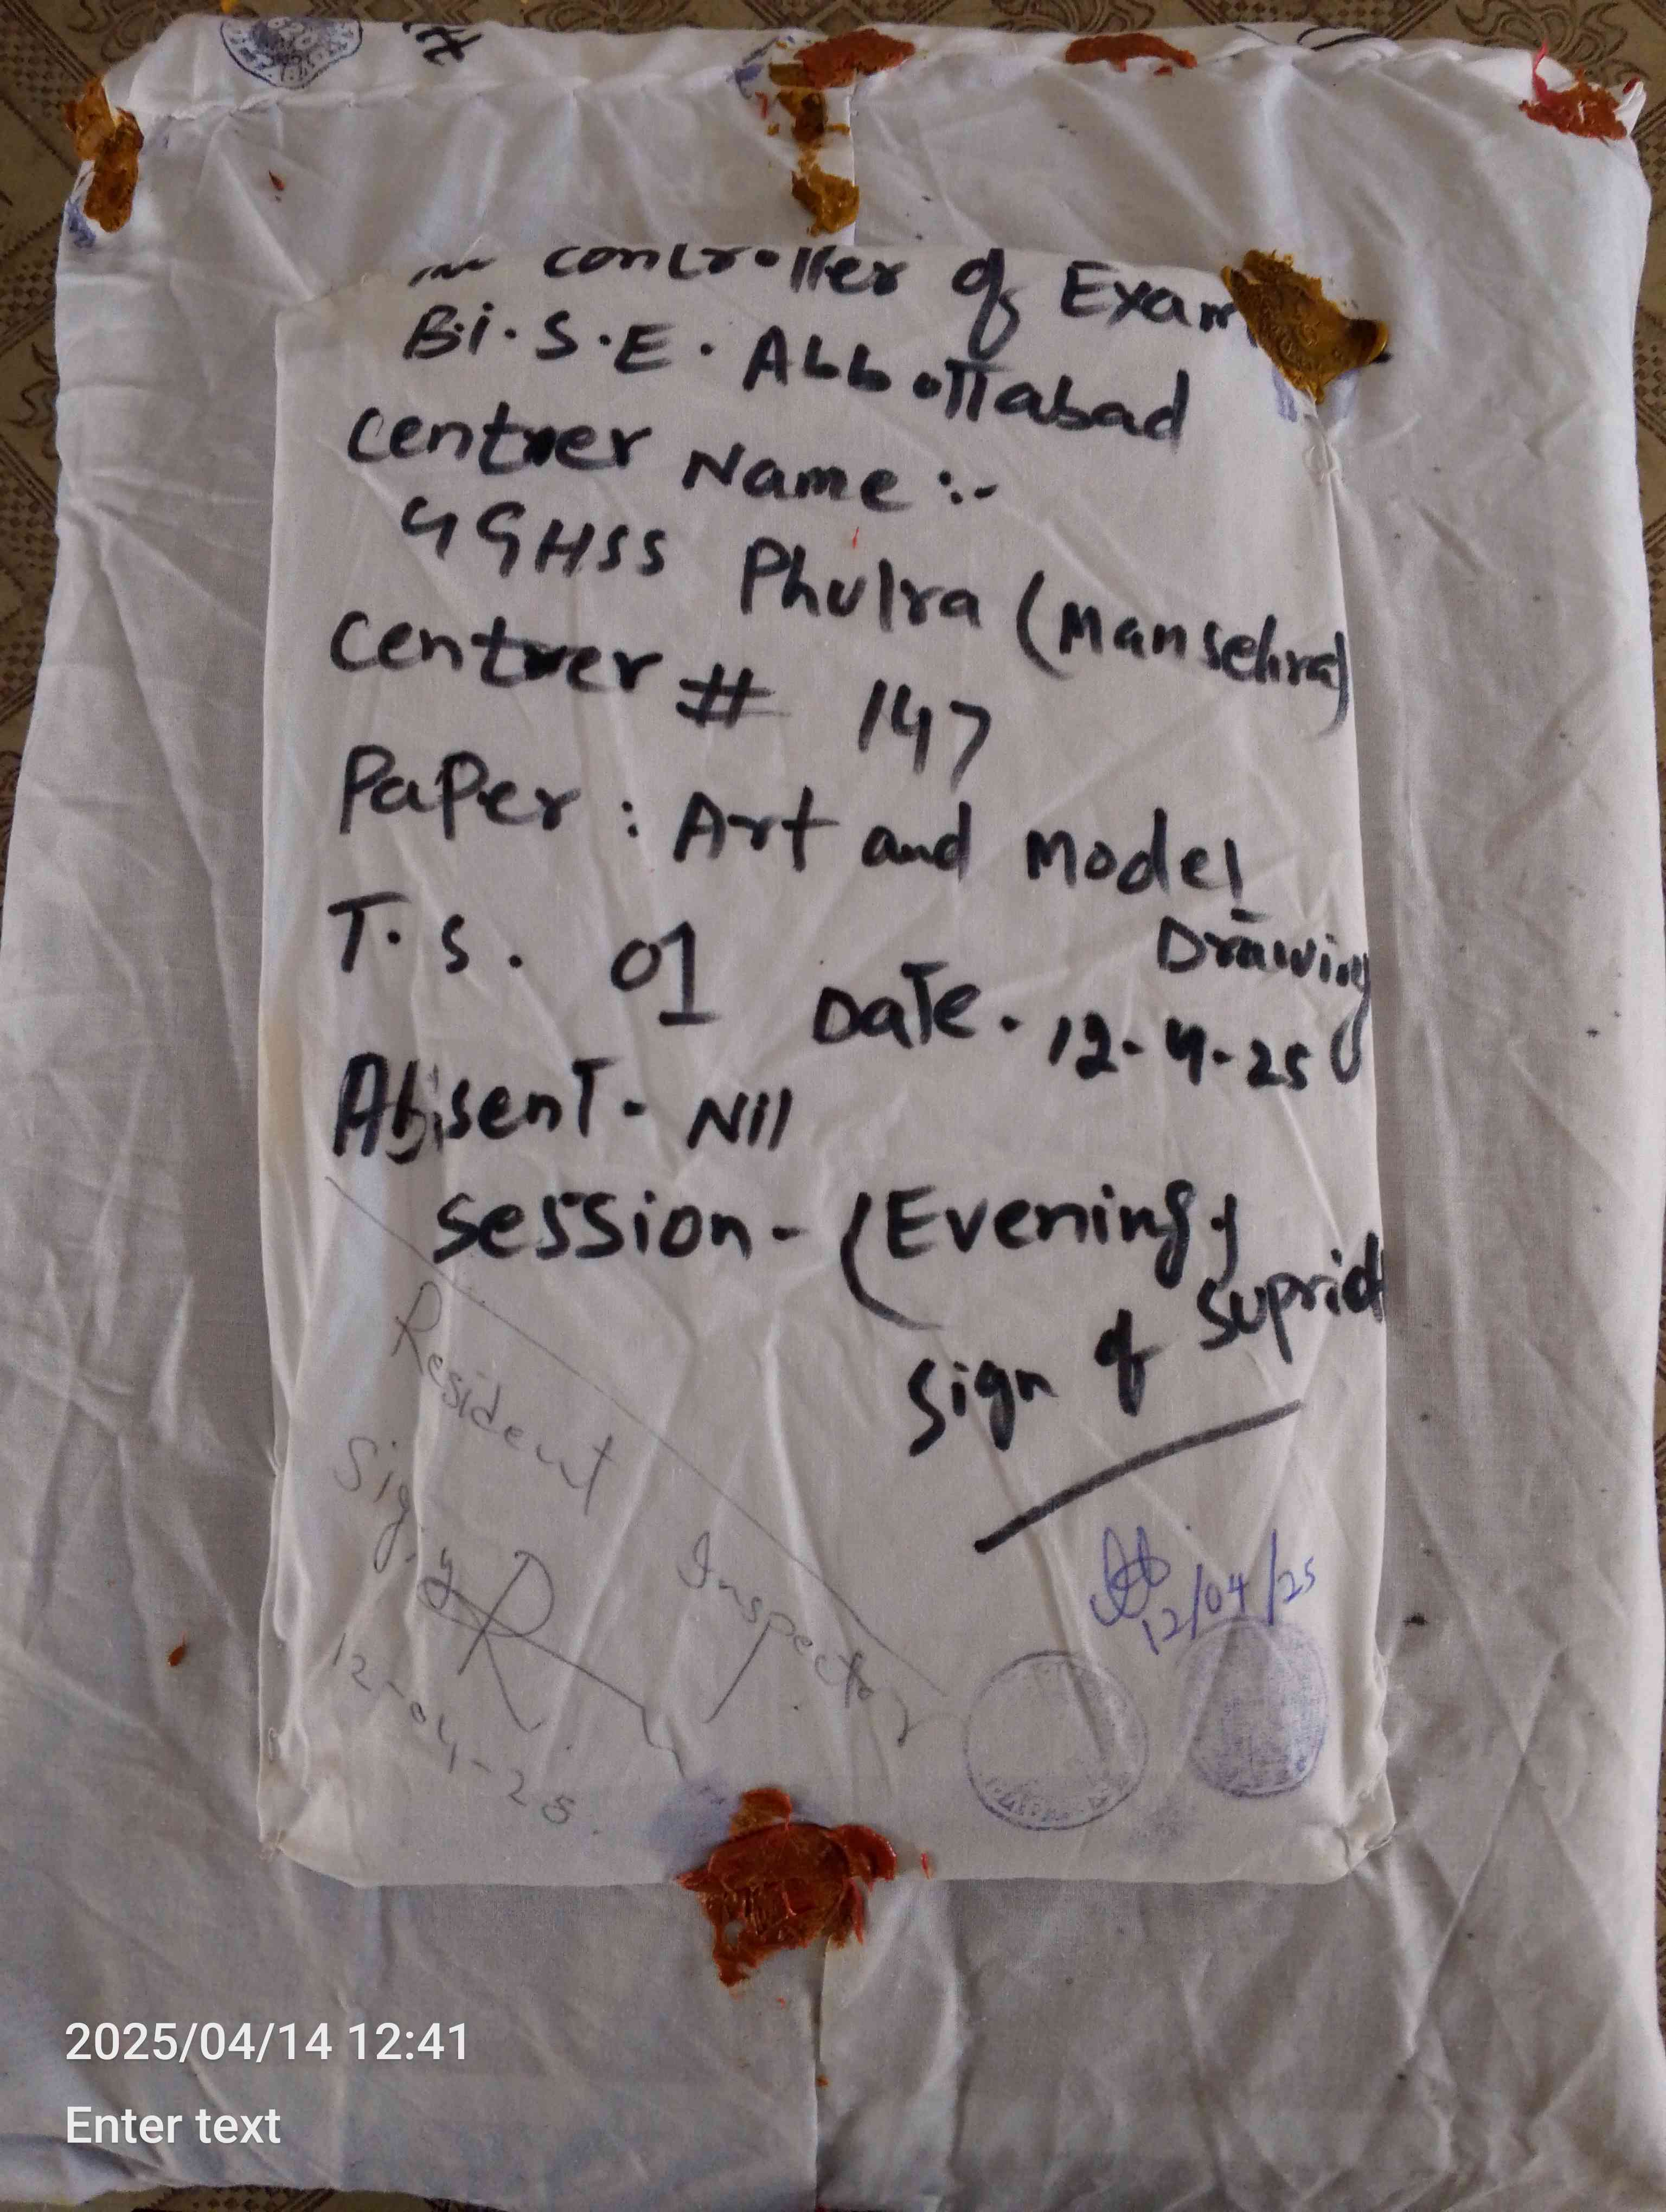 controller of Exam
B.i.S.E. Abbottabad
Centrer Name :-
GGHSS Phulra (Mansehra)
Centrer # 147
Paper : Art and Model
Drawing
T.S. 01 Date. 12-4-25
Absent - Nil
Session - (Evening)
Sign of Supridt
Resident Inspector
Sig.
12/04/25
12-04-25
2025/04/14 12:41
Enter text